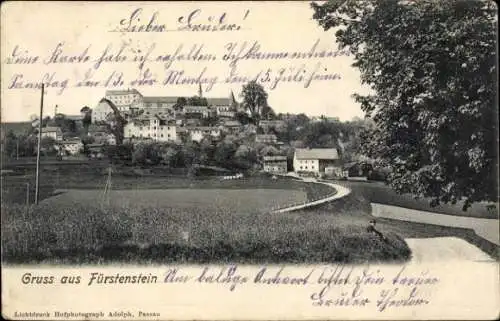 Lieber Bruder!
Deine Karte habe ich erhalten. Ich komme entweder
Samstag den 13 oder Montag den 15 Juli heim
Gruss aus Fürstenstein
Um baldige Antwort bittet Dein treuer
Bruder Theodor
Lichtdruck Hofphotograph Adolph, Passau